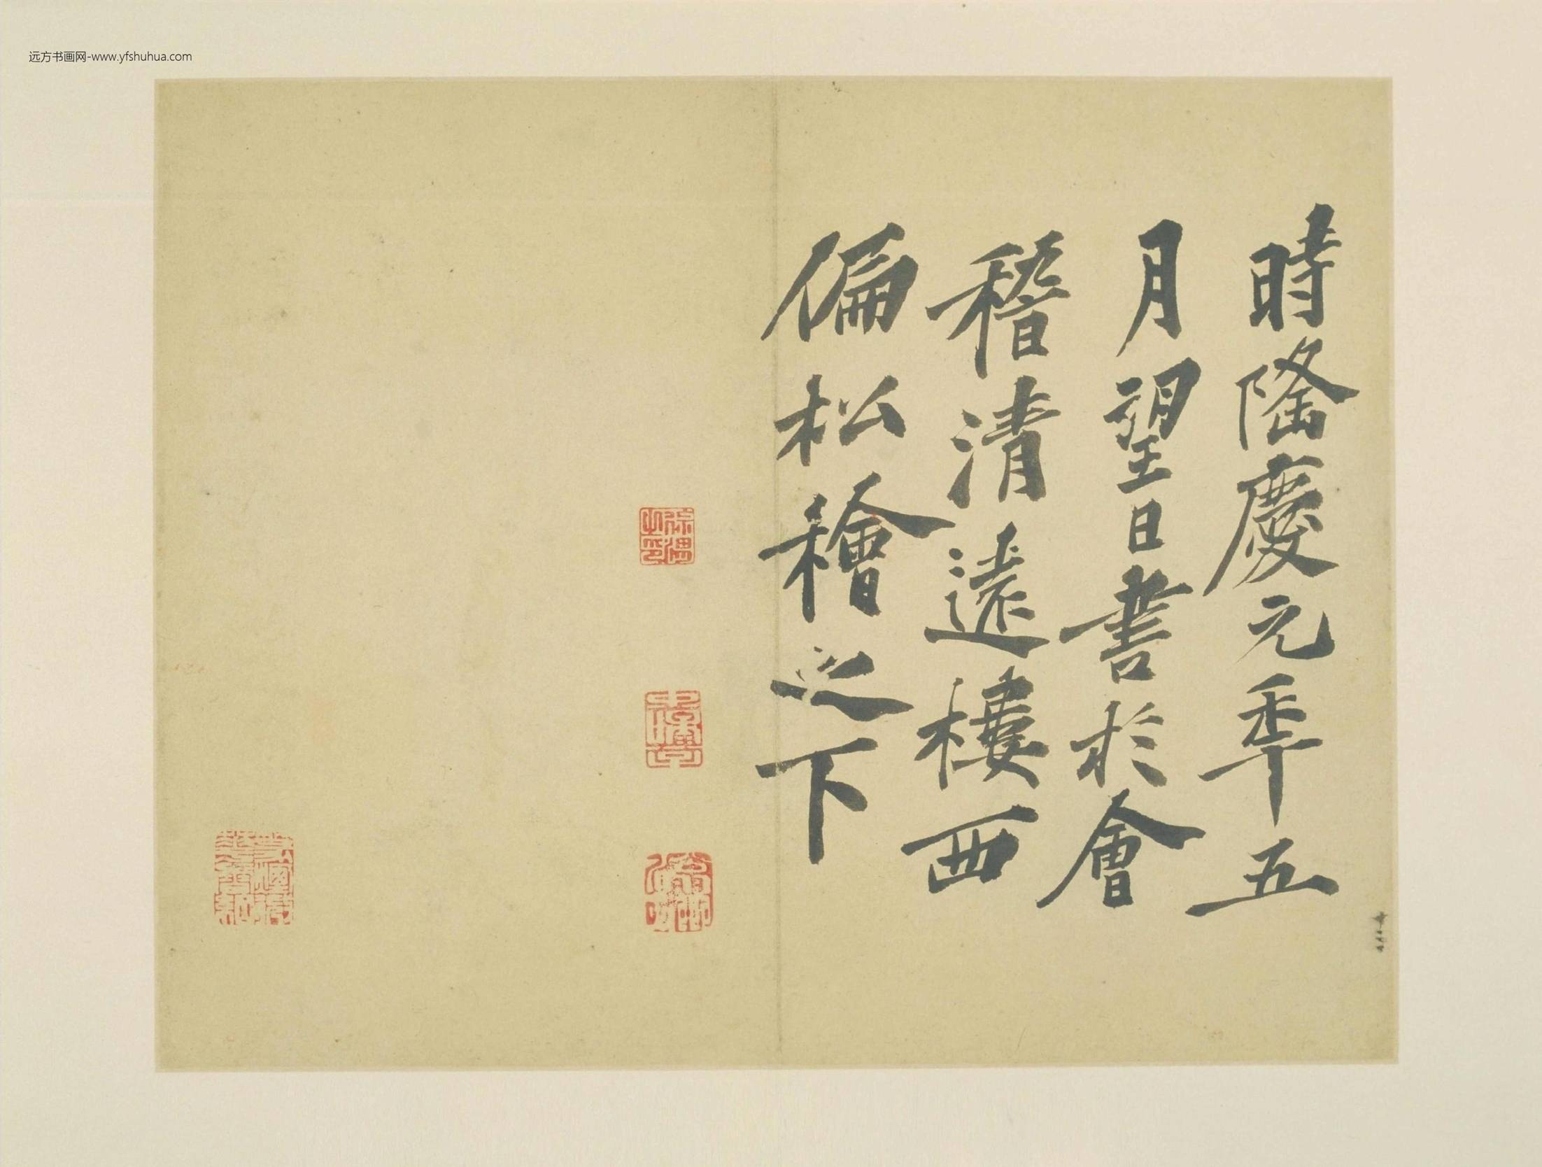 远方书画网-www.yfshuhua.com
時隆慶元秊五
月望日書於會
稽清遠樓西
偏松檜之下